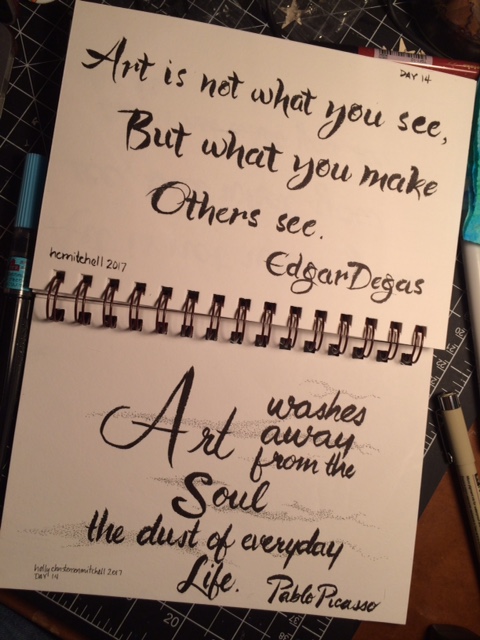 DAY 14
Art is not what you see,
But what you make
Others see.
Edgar Degas
hcmitchell 2017
Art washes
away
from the
Soul
the dust of everyday
Life.
Pablo Picasso
DAY 14
20